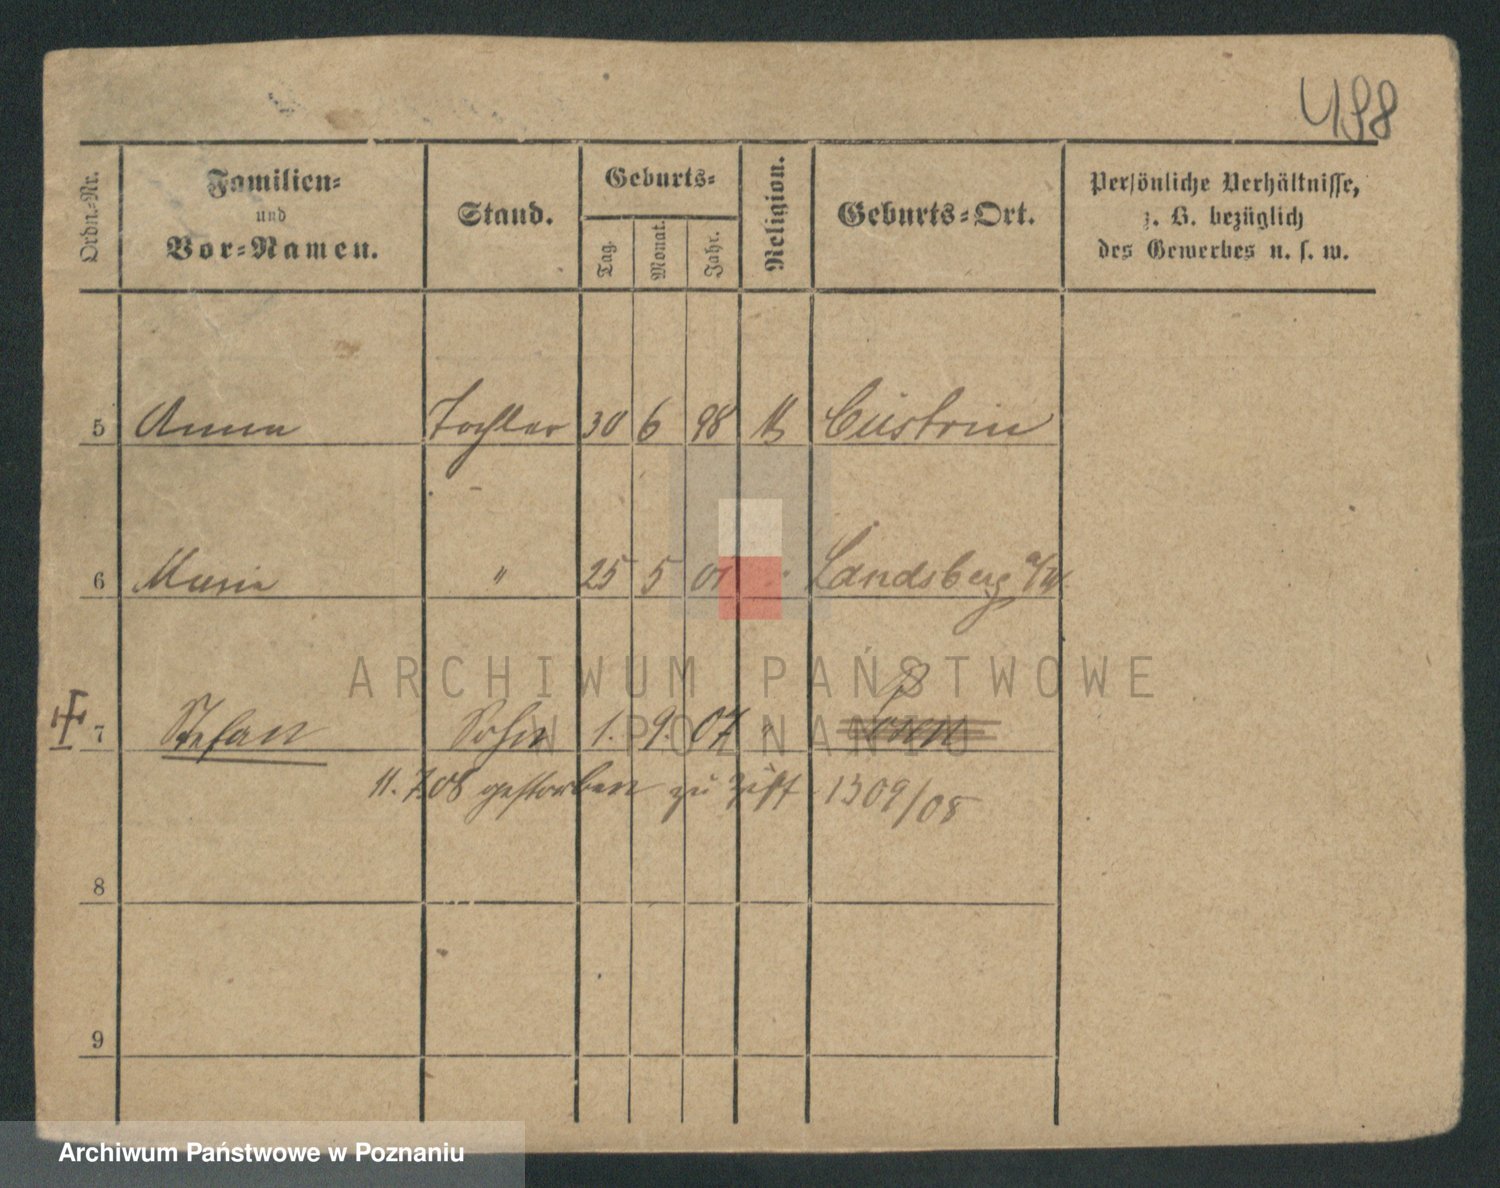 498
Ordn.-Nr.
Familien-
und
Vor-Namen.
Stand.
Geburts-
Tag.
Monat.
Jahr.
Religion.
Geburts-Ort.
Persönliche Verhältnisse,
z. B. bezüglich
des Gewerbes u. s. w.
5 Anna Tochter 30 6 98 Cüstrin
6 Marie " 25 5 01 " Landsberg a/W.
7 Stefan Sohn 1. 9. 07 "
11. 7.08 gestorben zu 1309/08
8
9
ARCHIWUM PAŃSTWOWE
W POZNANIU
Archiwum Państwowe w Poznaniu